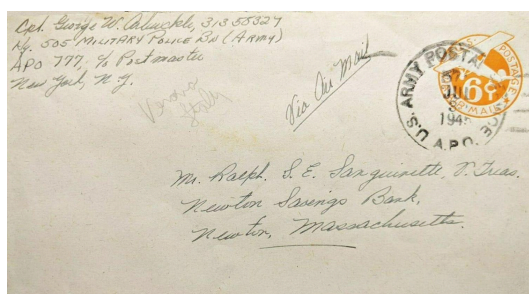 Cpl. George W. Arbuckle, 31355327
Hq. 505 MILITARY POLICE BN (ARMY)
APO 777, c/o Postmaster
New York, N.Y.
Verona
Italy
Via Air Mail
U.S. ARMY POSTAL
A.P.O.
6¢
AIR MAIL
Mr. Ralph S. E. Sanguinette, V. Treas.
Newton Savings Bank,
Newton, Massachusetts.